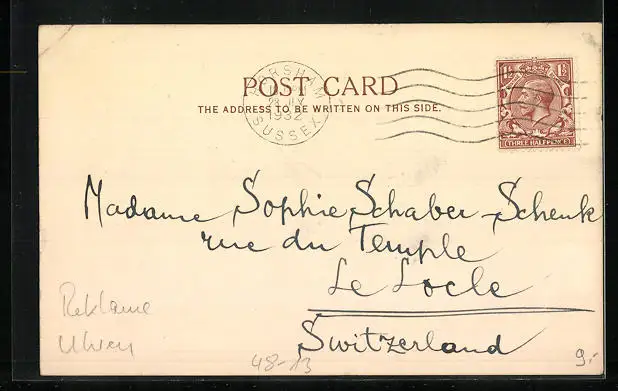 POST CARD
THE ADDRESS TO BE WRITTEN ON THIS SIDE.
HORSHAM
1932
SUSSEX
1½ 1½
THREE HALFPENCE
Madame Sophie Schaber-Schenk
rue du Temple
Le Locle
Switzerland
Reklame
Uhren
48-13
9.-